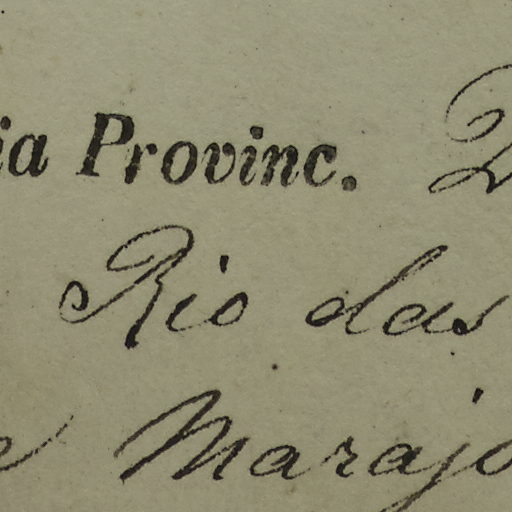 ia Provinc.
Rio das
Marajo